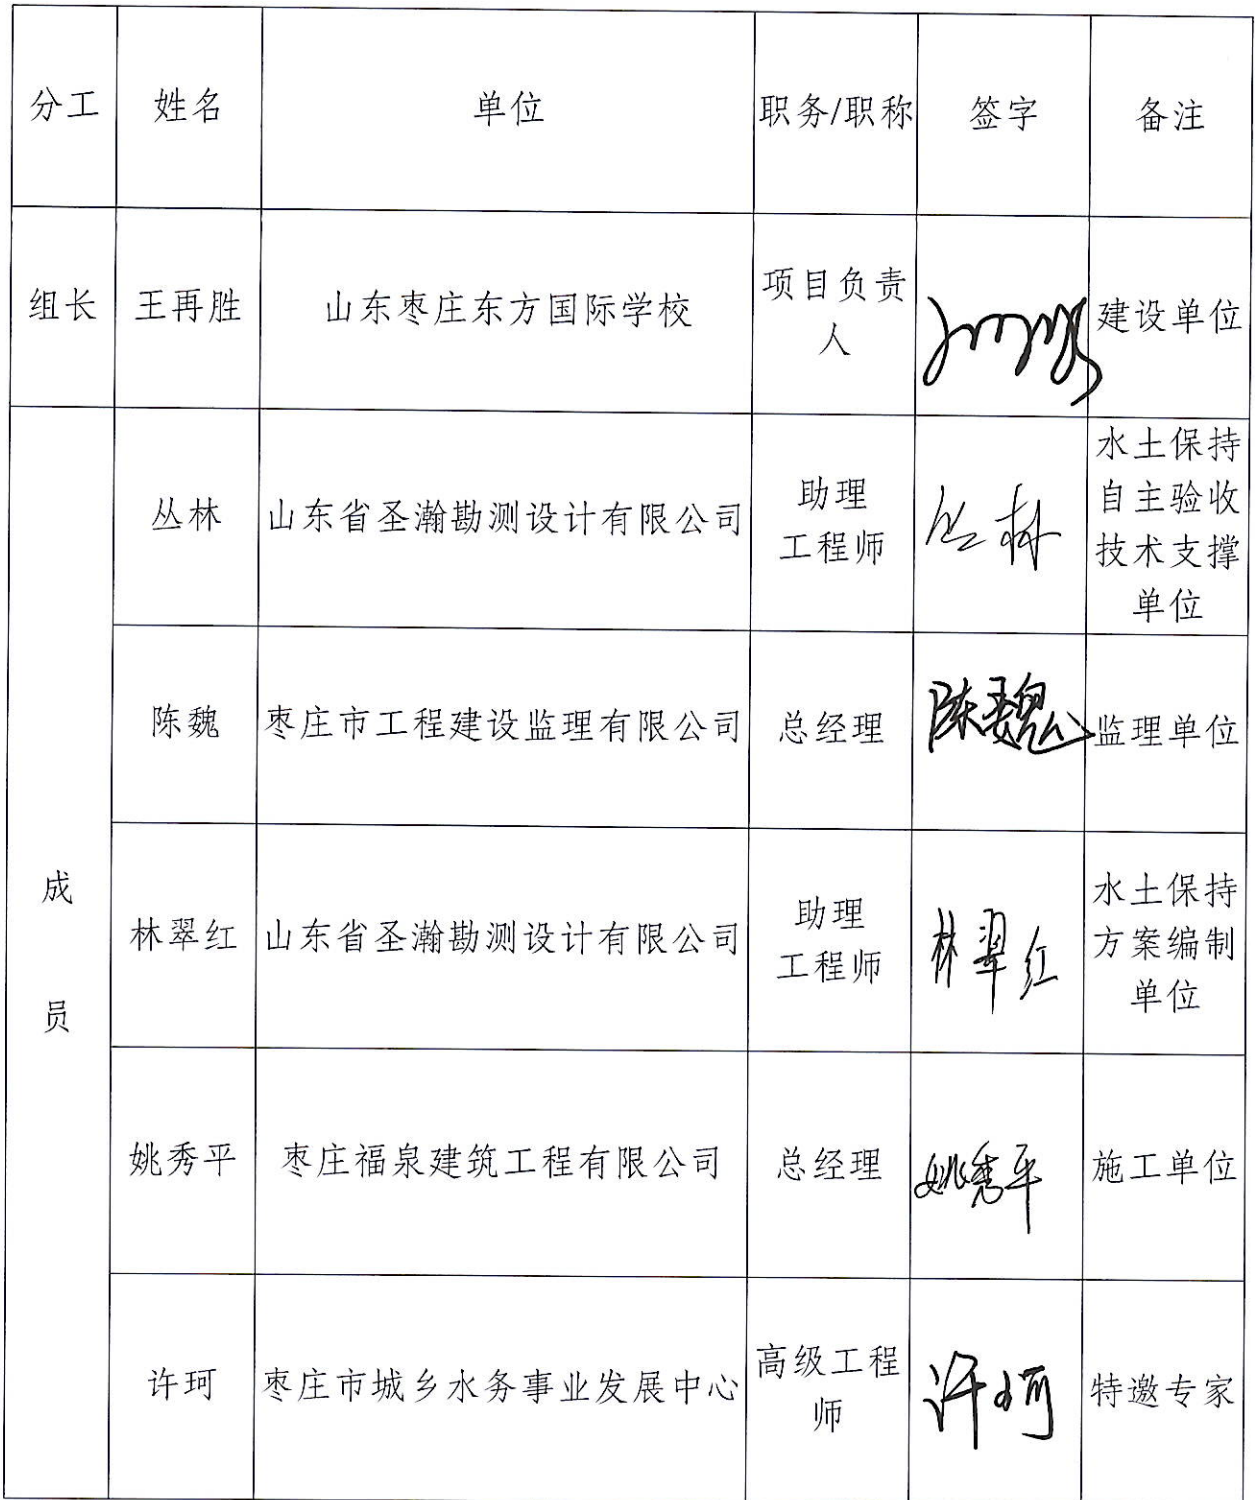 分工 姓名 单位 职务/职称 签字 备注
组长 王再胜 山东枣庄东方国际学校 项目负责
人
建设单位
成
员
丛林 山东省圣瀚勘测设计有限公司 助理
工程师
丛林
水土保持
自主验收
技术支撑
单位
陈魏 枣庄市工程建设监理有限公司 总经理 陈魏 监理单位
林翠红 山东省圣瀚勘测设计有限公司 助理
工程师
林翠红
水土保持
方案编制
单位
姚秀平 枣庄福泉建筑工程有限公司 总经理 姚秀平 施工单位
许珂 枣庄市城乡水务事业发展中心 高级工程
师
许珂
特邀专家